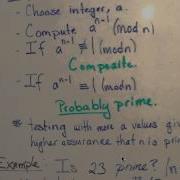 - Choose integer, a.
- Compute a^(n-1) (mod n)
- If a^(n-1) ≢ 1 (mod n)
Composite.
- If a^(n-1) ≡ 1 (mod n)
Probably prime.
* testing with more a values giv
higher assurance that n is prim
Example Is 23 prime? (n